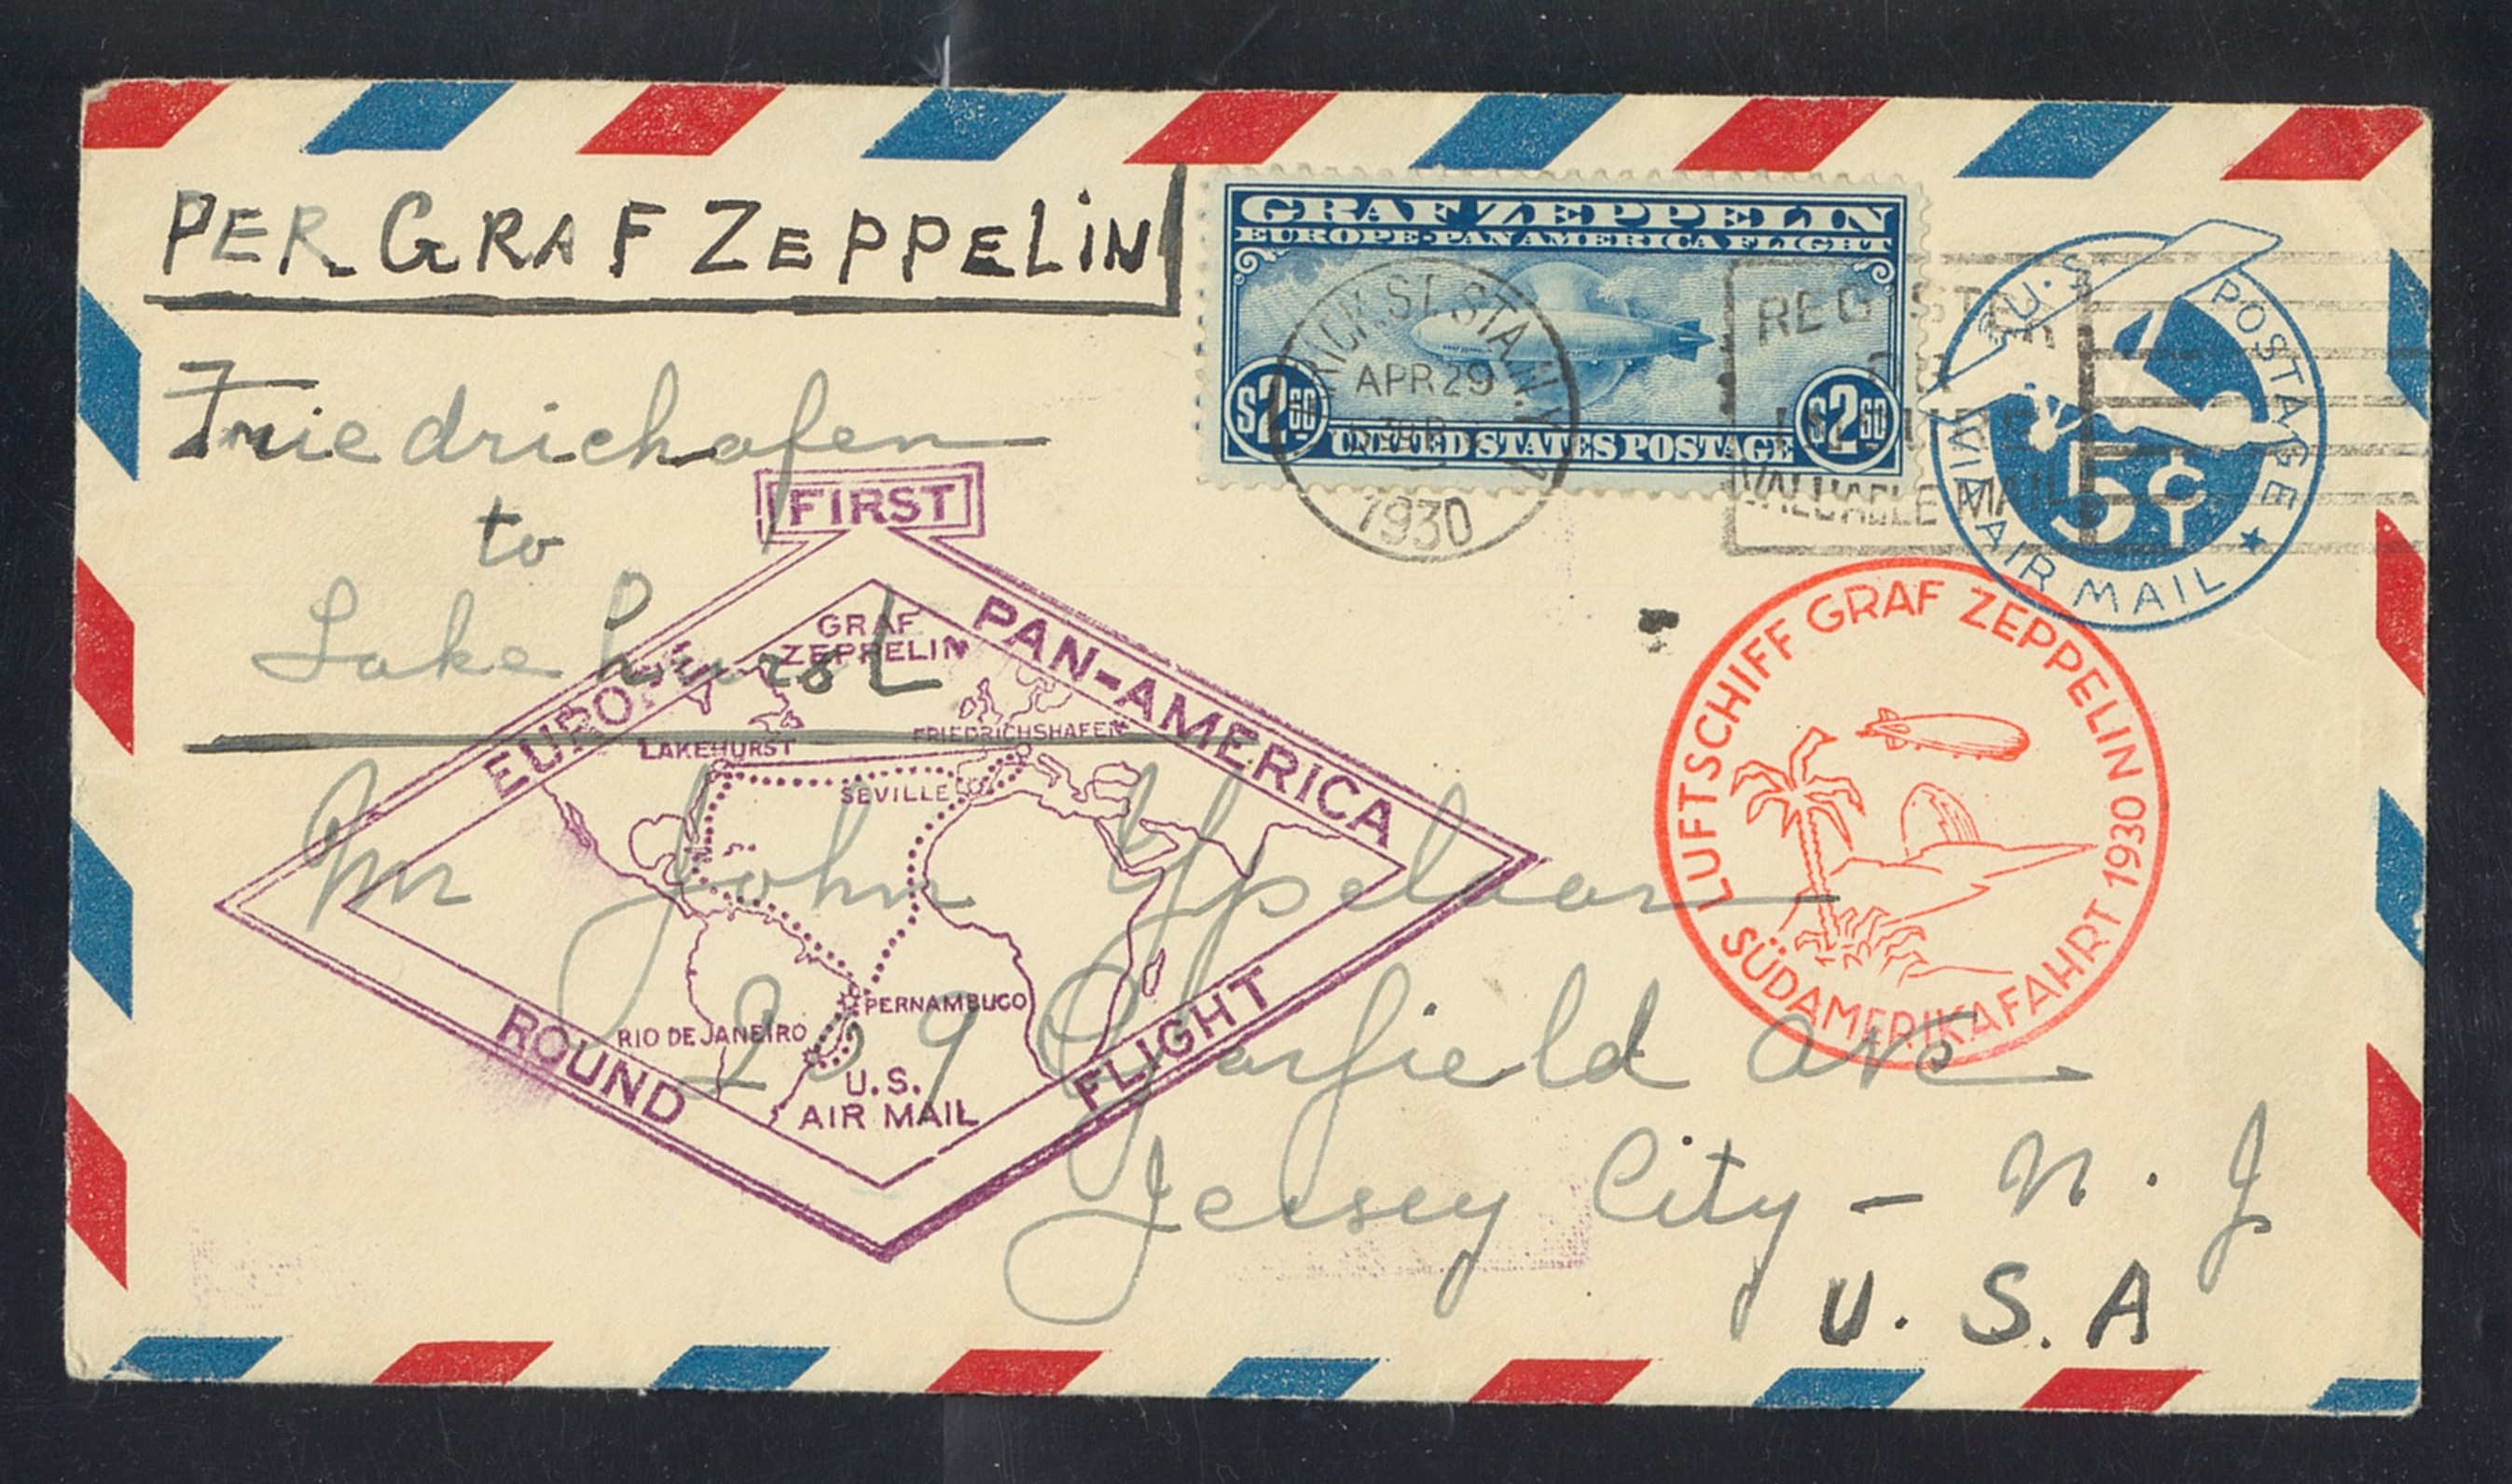 PER GRAF ZEPPELIN
GRAF ZEPPELIN
EUROPE-PAN AMERICA FLIGHT
$2.60 $2.60
UNITED STATES POSTAGE
VARICK ST. STA. N.Y.
APR 29
1930
REGISTER
VALUABLE MAIL
U.S. POSTAGE
5¢
VIA AIR MAIL
Friedrichafen
to
Lakehurst
FIRST
EUROPE PAN-AMERICA
ROUND FLIGHT
GRAF
ZEPPELIN
LAKEHURST
FRIEDRICHSHAFEN
SEVILLE
PERNAMBUCO
RIO DE JANEIRO
U.S.
AIR MAIL
LUFTSCHIFF GRAF ZEPPELIN 1930
SÜDAMERIKAFAHRT
Mr John Ypelaar
209 Garfield Ave
Jersey City - N. J
U. S. A